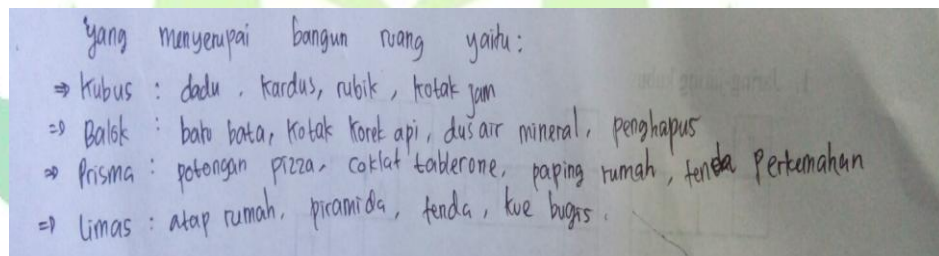 yang menyerupai bangun ruang yaitu :
⇒ Kubus : dadu, kardus, rubik, kotak jam
⇒ Balok : batu bata, kotak korek api, dus air mineral, penghapus
⇒ Prisma : potongan pizza, coklat tablerone, paping rumah, tenda perkemahan
⇒ Limas : atap rumah, piramida, tenda, kue bugis.